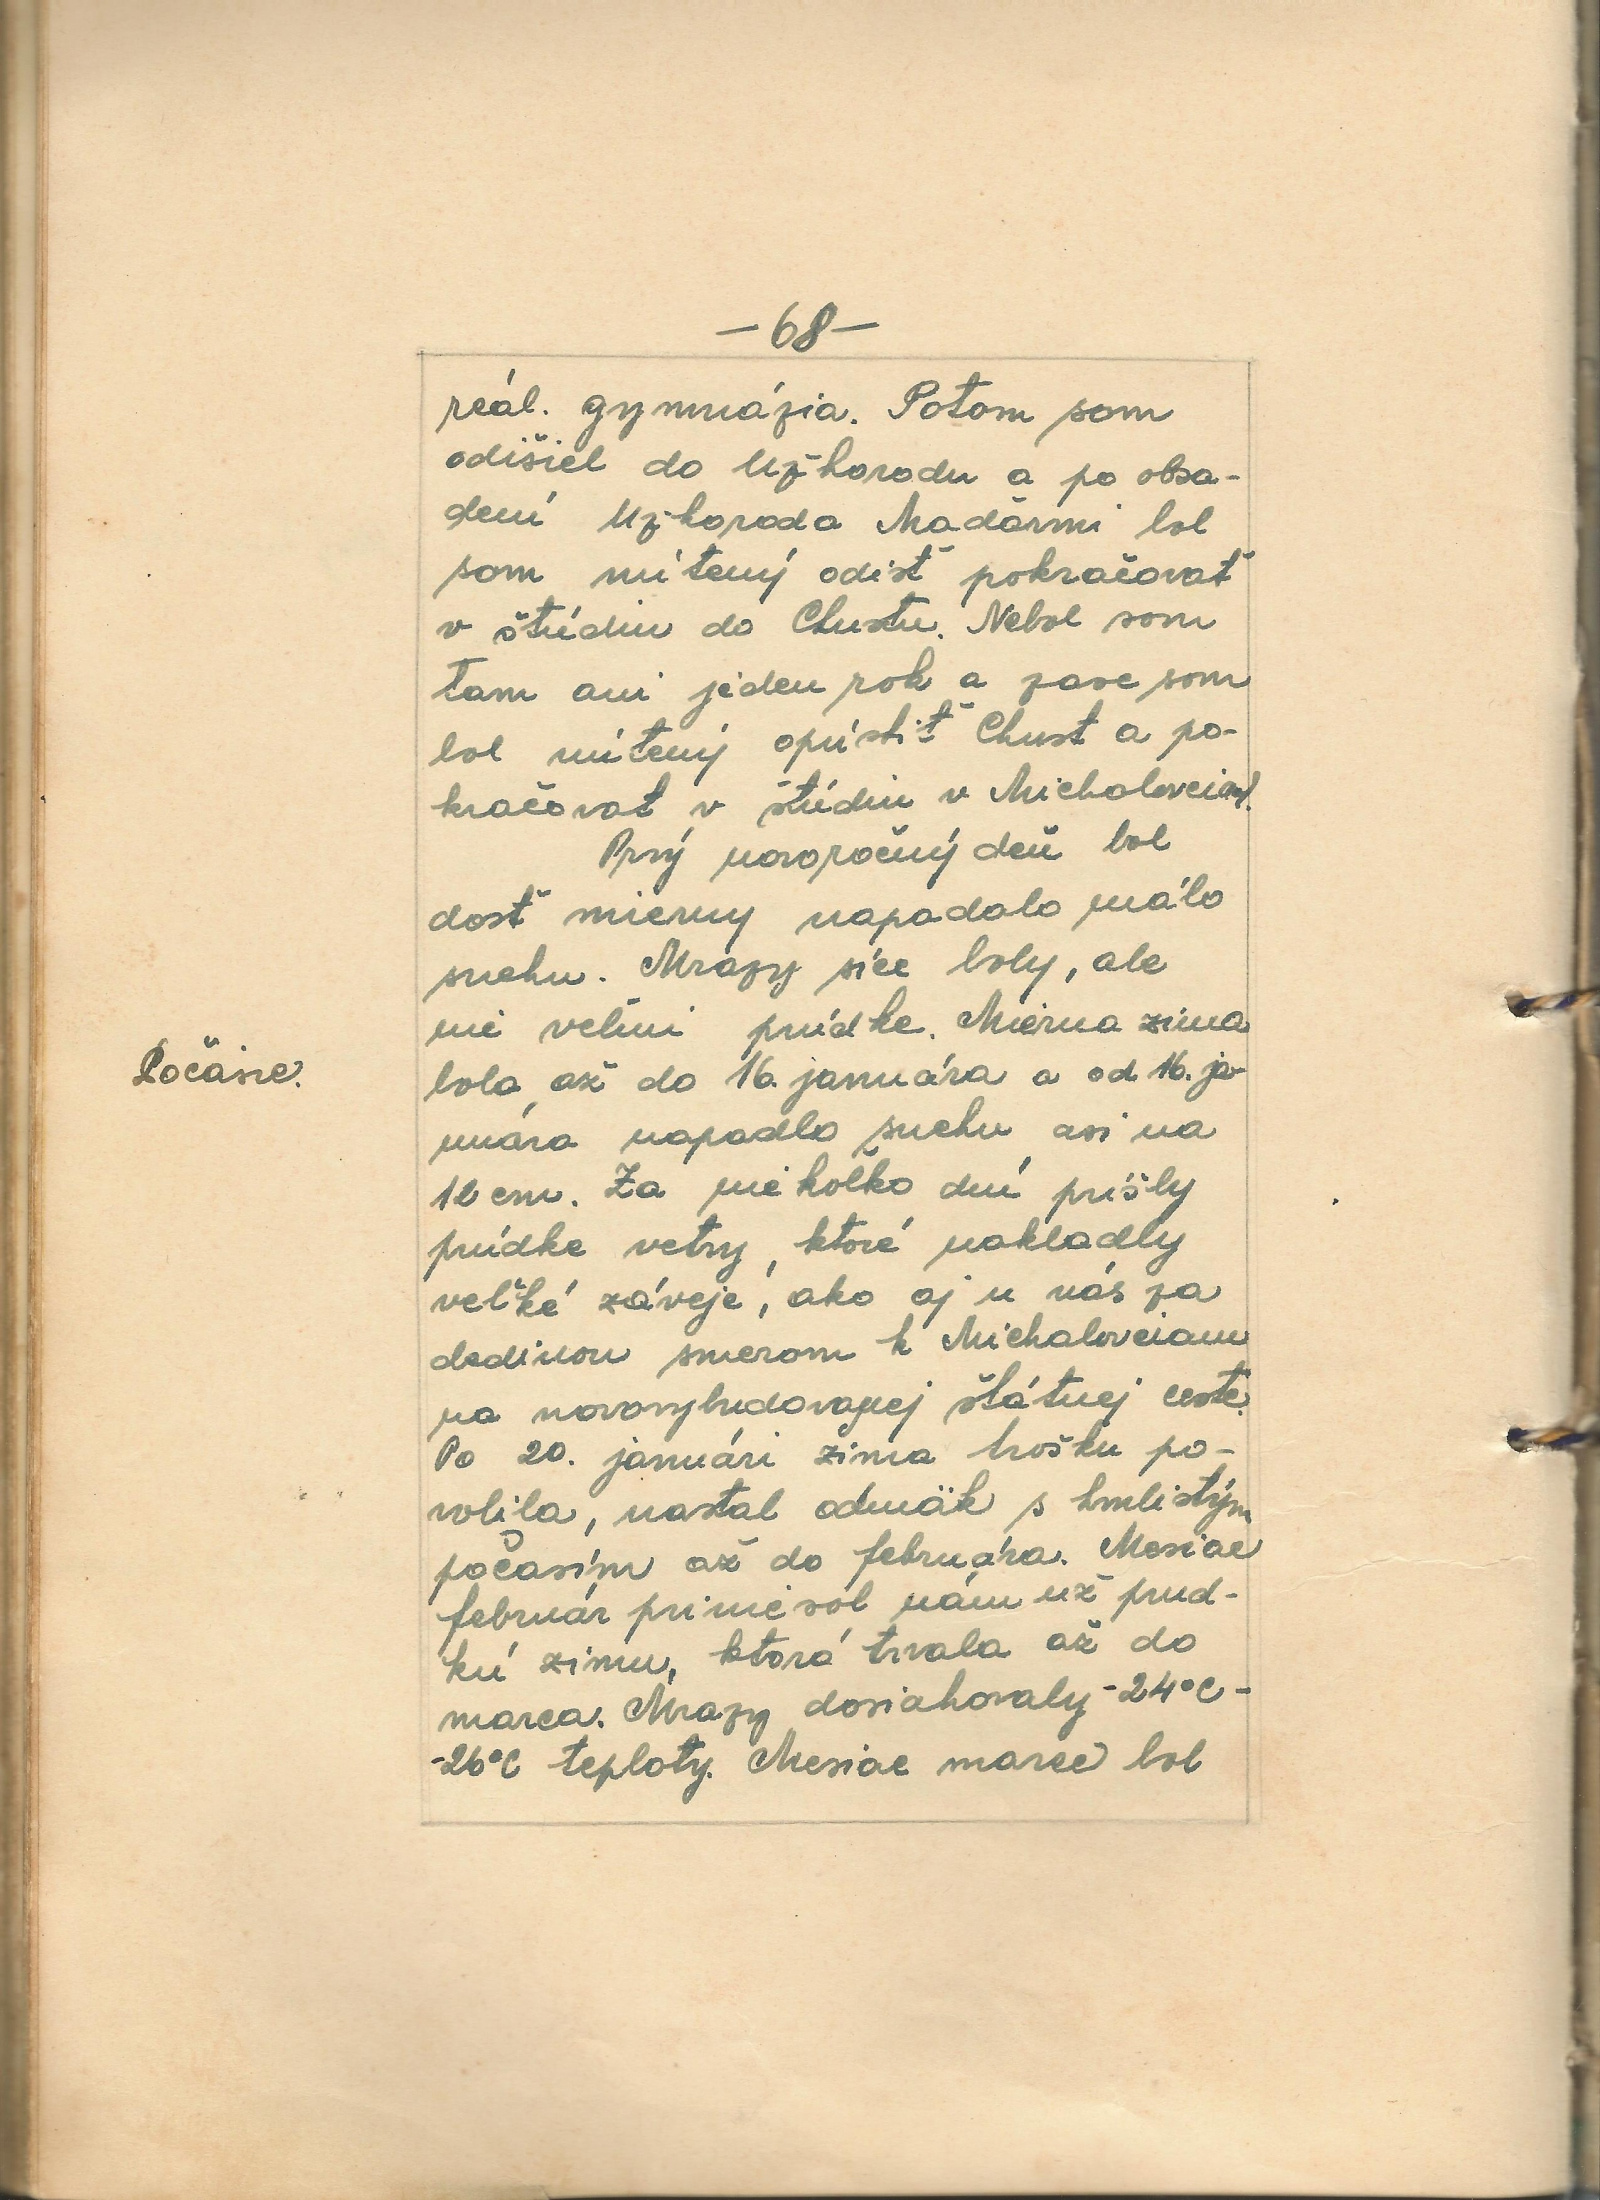 -68-
reál. gymnázia. Potom som
odišiel do Užhorodu a po obsa-
dení Užhoroda Maďarmi bol
som nútený odísť pokračovať
v štúdiu do Chustu. Nebol som
tam ani jeden rok a zase som
bol nútený opustiť Chust a po-
kračovat v štúdiu v Michalovciach.
Prvý novoročný deň bol
dosť mierny napadalo málo
snehu. Mrazy síce boly, ale
nie veľmi prúdke. Mierna zima
Počasie.
bola až do 16. januára a od 16. ja-
nuára napadlo snehu asi na
12 cm. Za niekoľko dní prišly
prúdke vetry, ktoré nakladly
veľké záveje, ako aj u nás za
dedinou smerom k Michalovciam
na novovybudovanej štátnej ceste.
Po 20. januári zima trošku po-
volila, nastal odmäk s hmlistým
počasím až do februára. Mesiac
február priniesol nám už prud-
kú zimu, ktorá trvala až do
marca. Mrazy dosiahovaly -24°C -
-26°C teploty. Mesiac marec bol